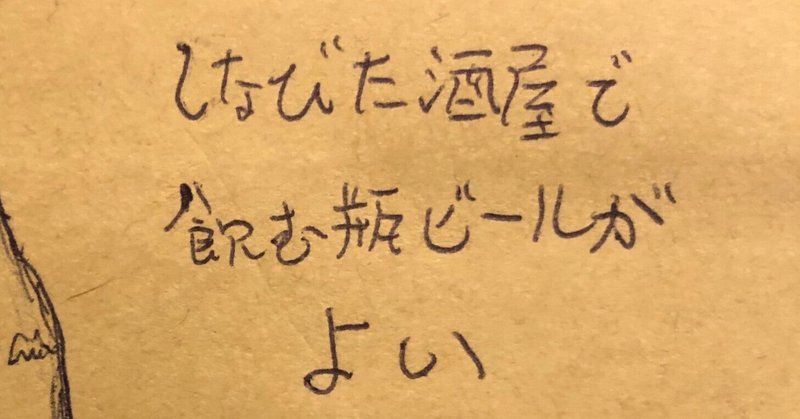 しなびた酒屋で
飲む瓶ビールが
よい